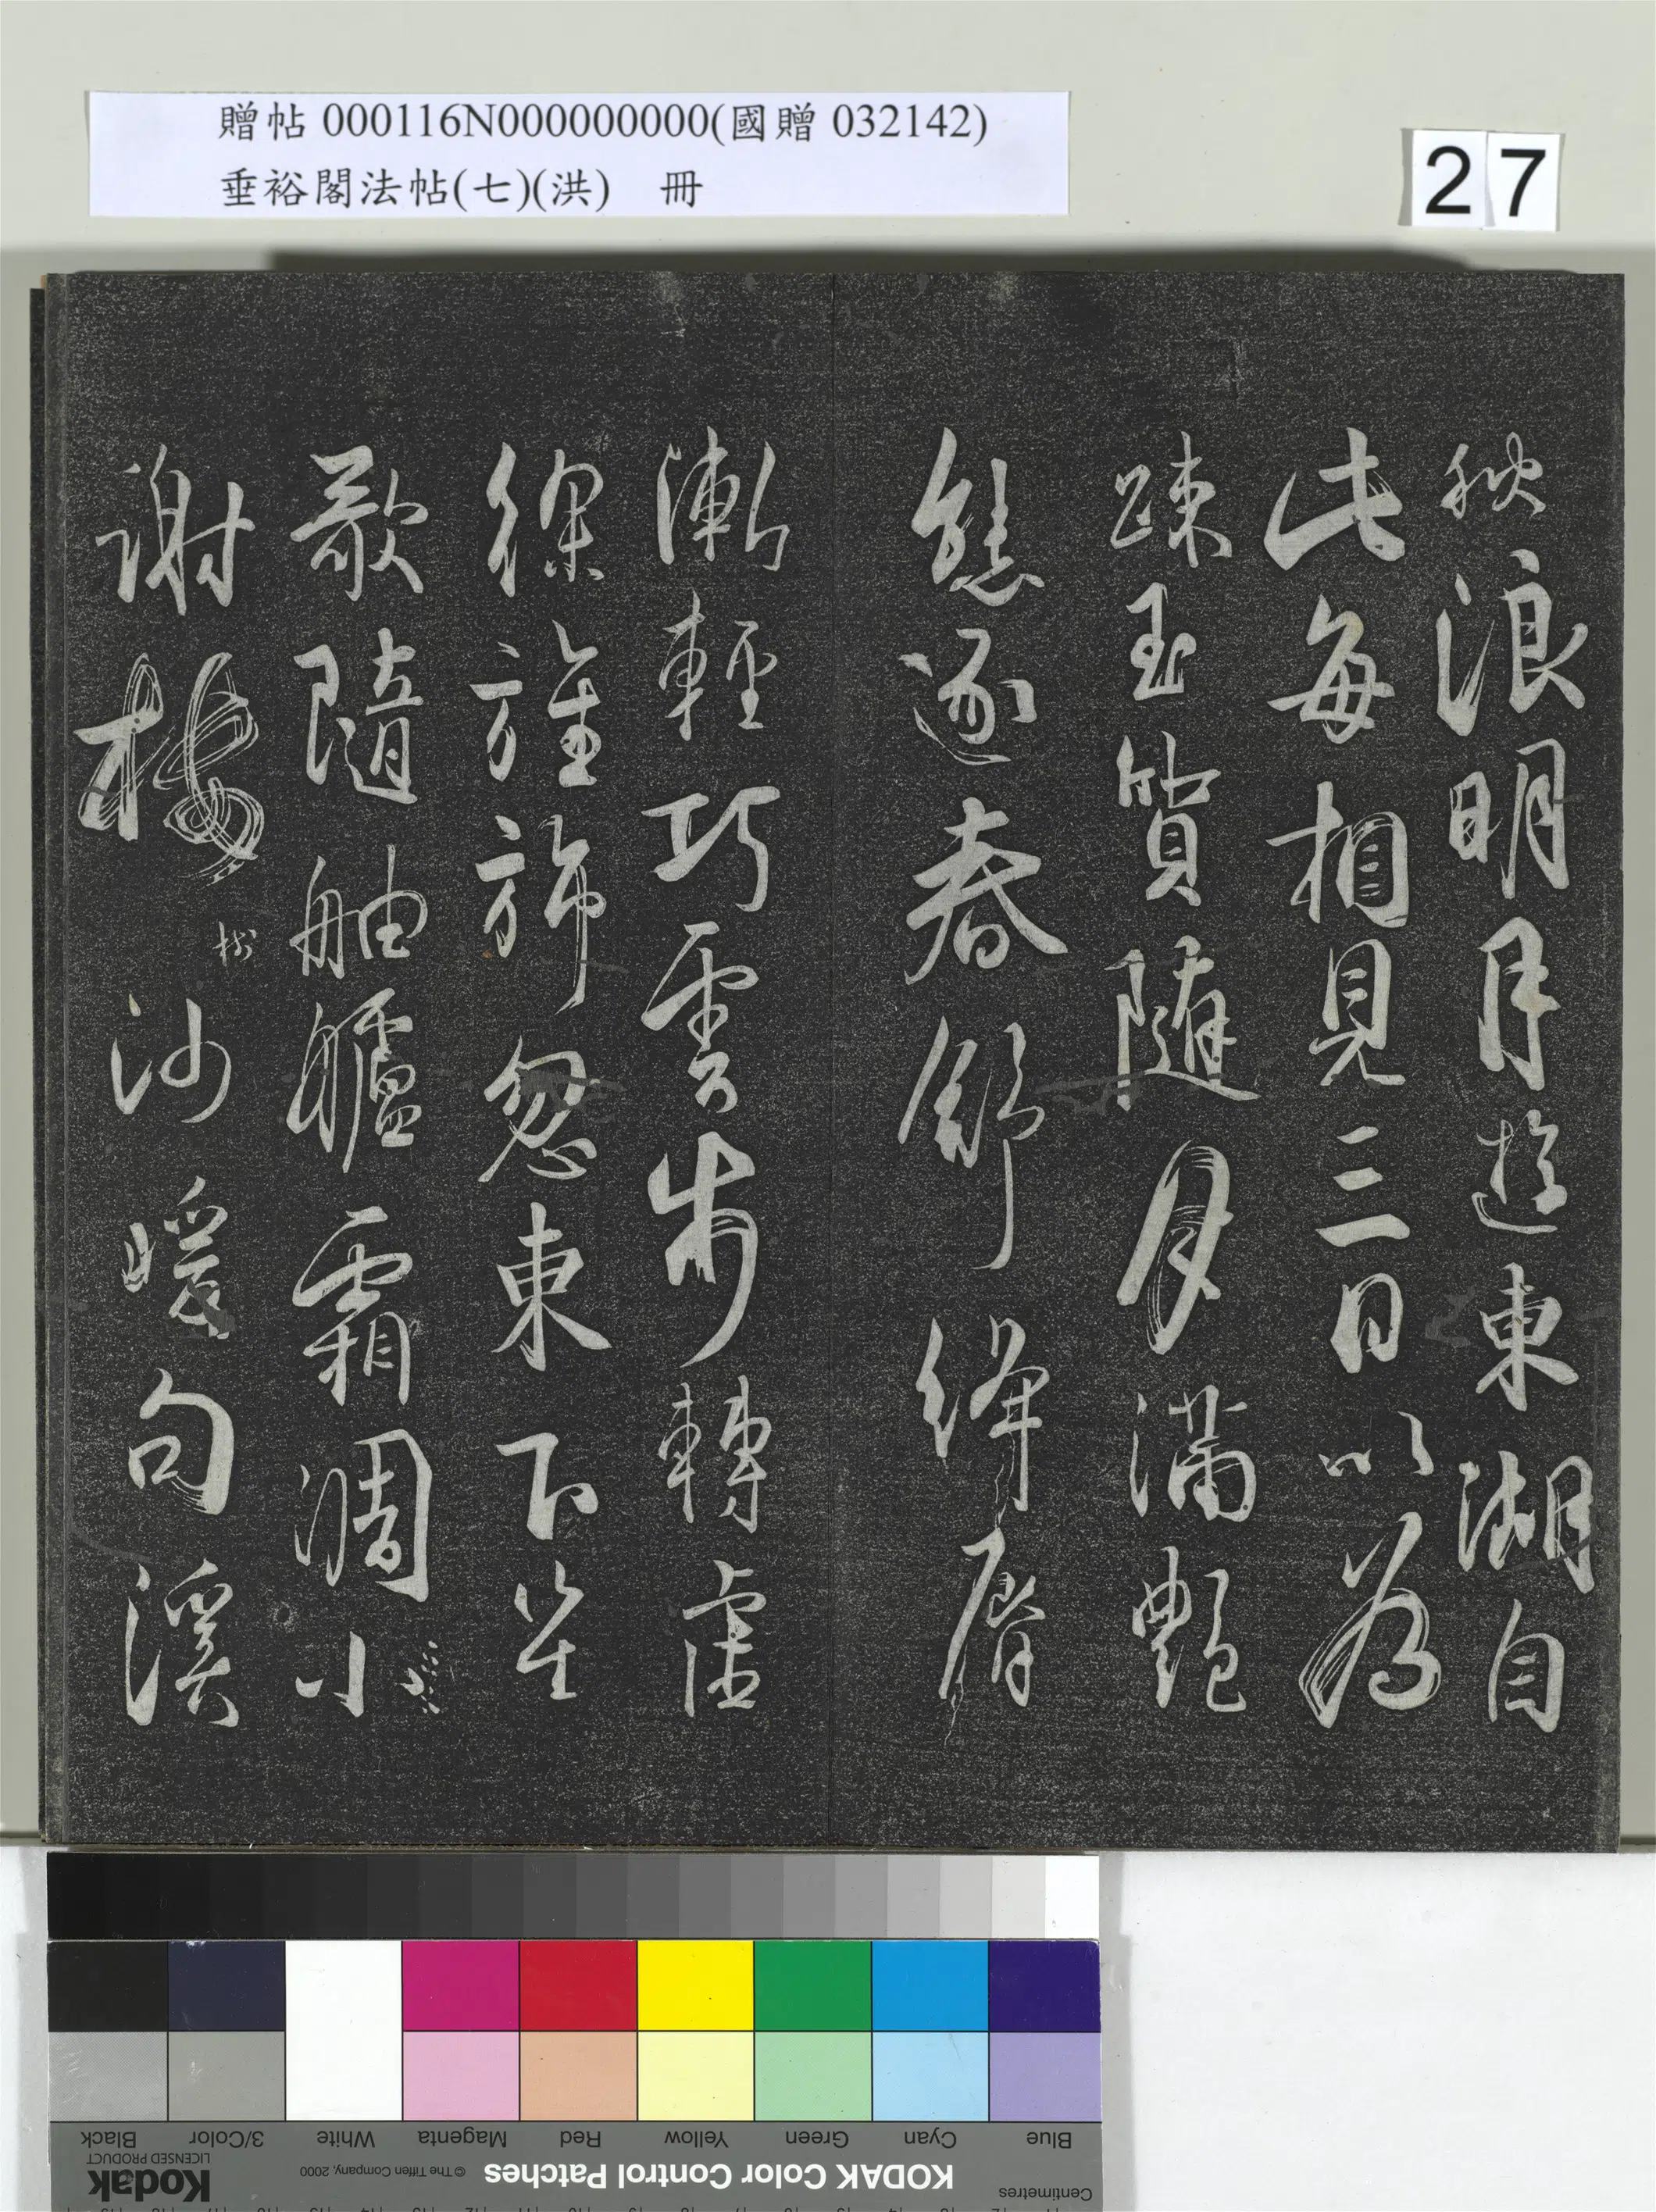 贈帖 000116N000000000(國贈 032142)
垂裕閣法帖(七)(洪) 冊
27
秋浪明月遊東湖自
此每相見三日以為
疎玉質隨月滿艷
態逐春舒絳脣
漸輕巧雲步轉虛
徐旌旆忽東下笙
歌隨舳艫霜凋小
謝樓
樹
沙暖句溪
Blue
Cyan
Green
Yellow
Red
Magenta
White
3/Color
Black
Centimetres
KODAK Color Control Patches
© The Tiffen Company, 2000
Kodak
LICENSED PRODUCT